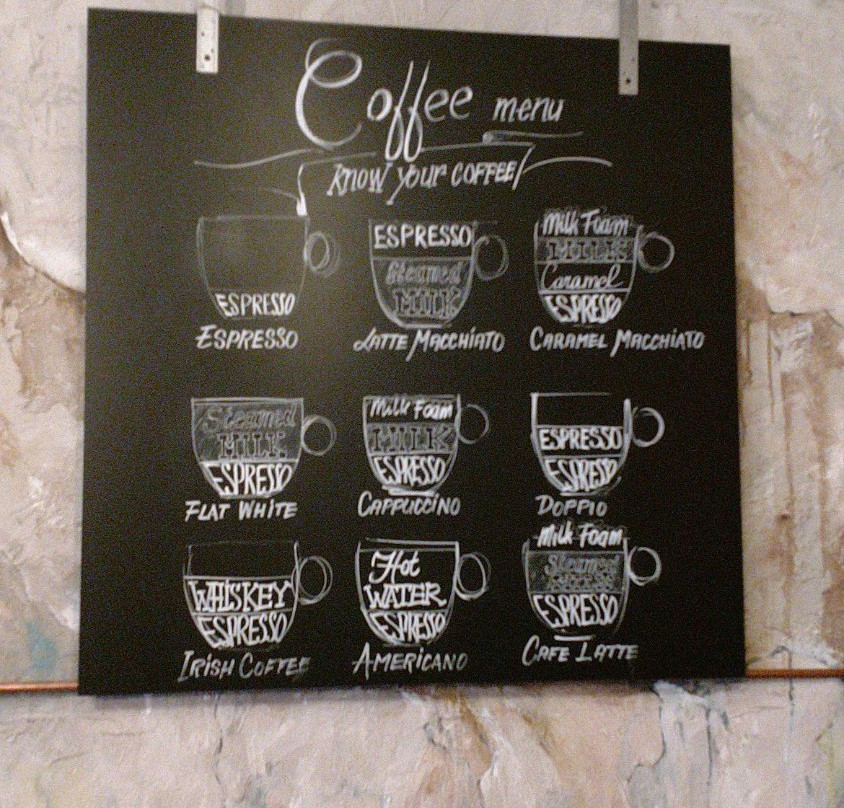 Coffee menu
Know your COFFEE
ESPRESSO
ESPRESSO
ESPRESSO
Steamed
MILK
LATTE MACCHIATO
Milk Foam
MILK
Caramel
ESPRESSO
CARAMEL MACCHIATO
Steamed
MILK
ESPRESSO
FLAT WHITE
Milk Foam
MILK
ESPRESSO
CAPPUCCINO
ESPRESSO
ESPRESSO
DOPPIO
WHISKEY
ESPRESSO
IRISH COFFEE
Hot
WATER
ESPRESSO
AMERICANO
Milk Foam
Steamed
MILK
ESPRESSO
CAFE LATTE